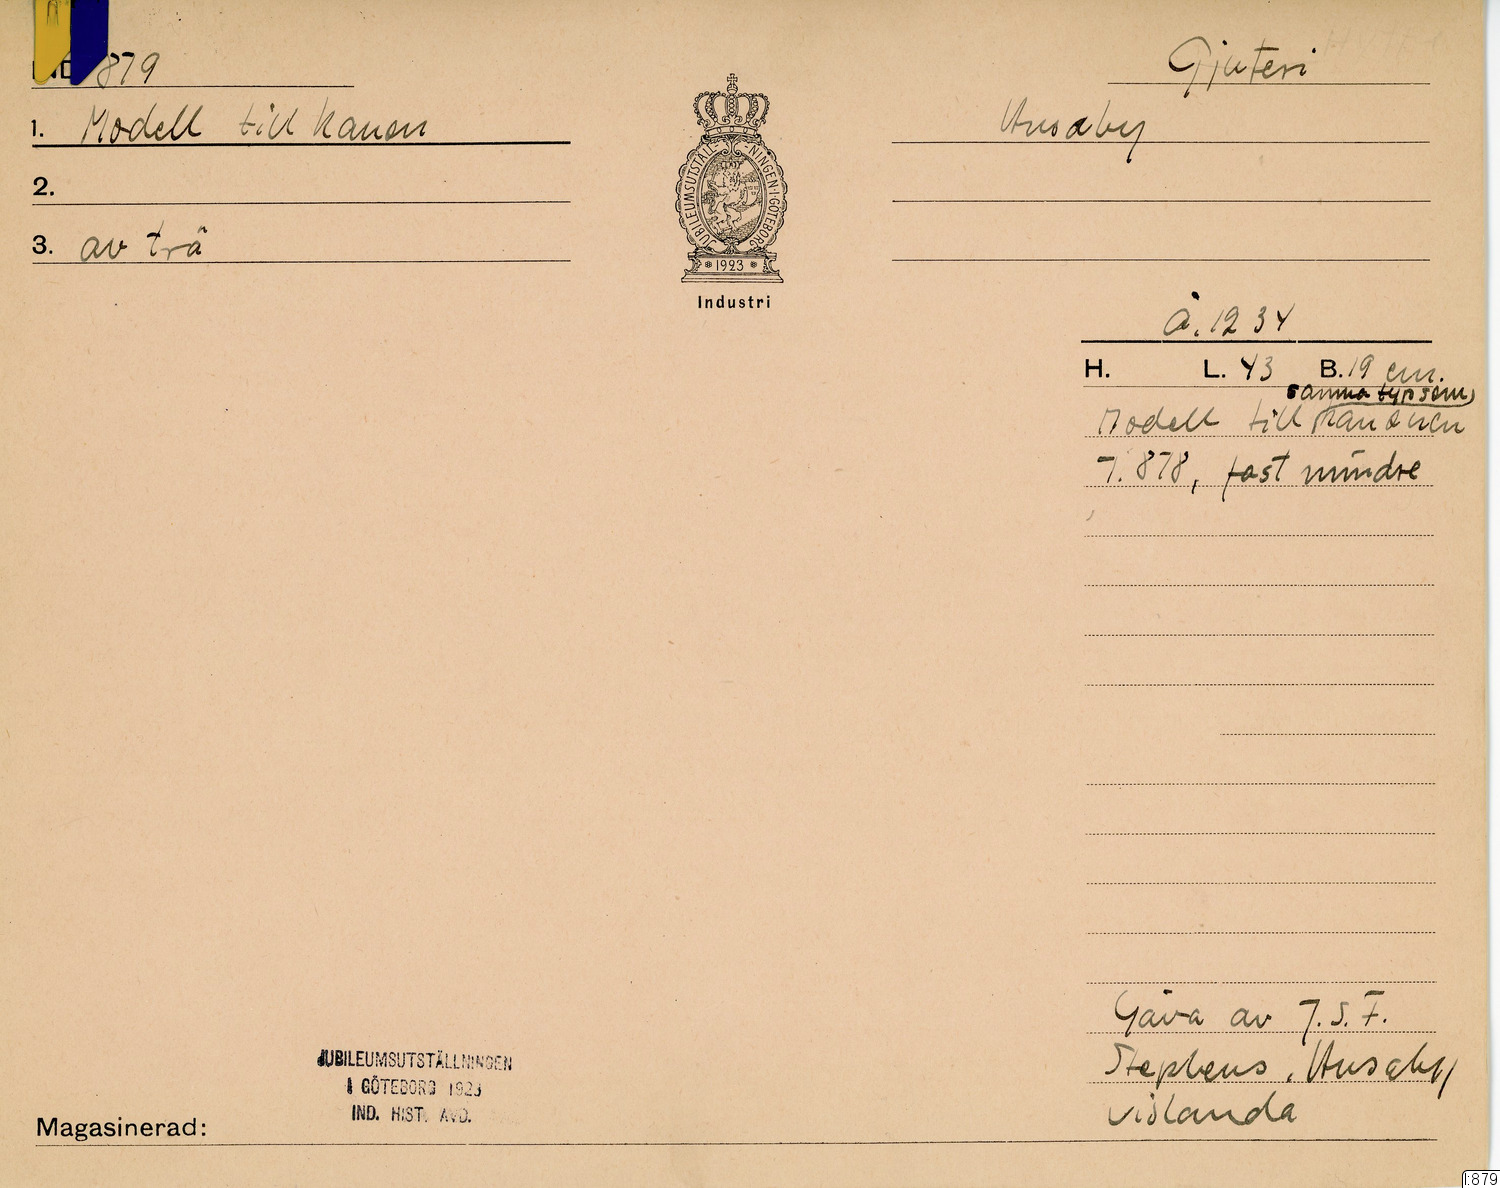 IND 879
Gjuteri
1. Modell till kanon
Husaby
2.
3. av trä
JUBILEUMSUTSTÄLL-NINGEN·I·GÖTEBORG
1923
Industri
Å. 1234
H. L. 43 B. 19 cm.
samma typ som
Modell till kanonen
I. 878, fast mindre
Gåva av J. S. F.
Stephens, Husaby,
Vislanda
JUBILEUMSUTSTÄLLNINGEN
I GÖTEBORG 1923
IND. HIST. AVD.
Magasinerad:
I:879